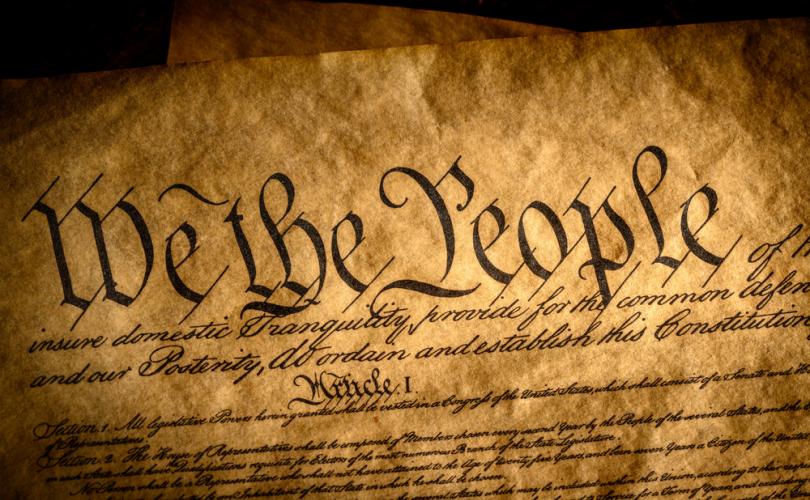 We the People of th
insure domestic Tranquility, provide for the common defen
and our Posterity, do ordain and establish this Constitution
Article. I.
Section 1. All legislative Powers herein granted shall be vested in a Congress of the United States, which shall consist of a Senate and H
of Representatives.
Section 2. The House of Representatives shall be composed of Members chosen every second Year by the People of the several States, and the
in each State shall have Qualifications requisite for Electors of the most numerous Branch of the State Legislature.
No Person shall be a Representative who shall not have attained to the Age of twenty five Years, and been seven Years a Citizen of the Unit
an Inhabitant of that State in which he shall be chosen.
the several States which may be included within this Union, according to their